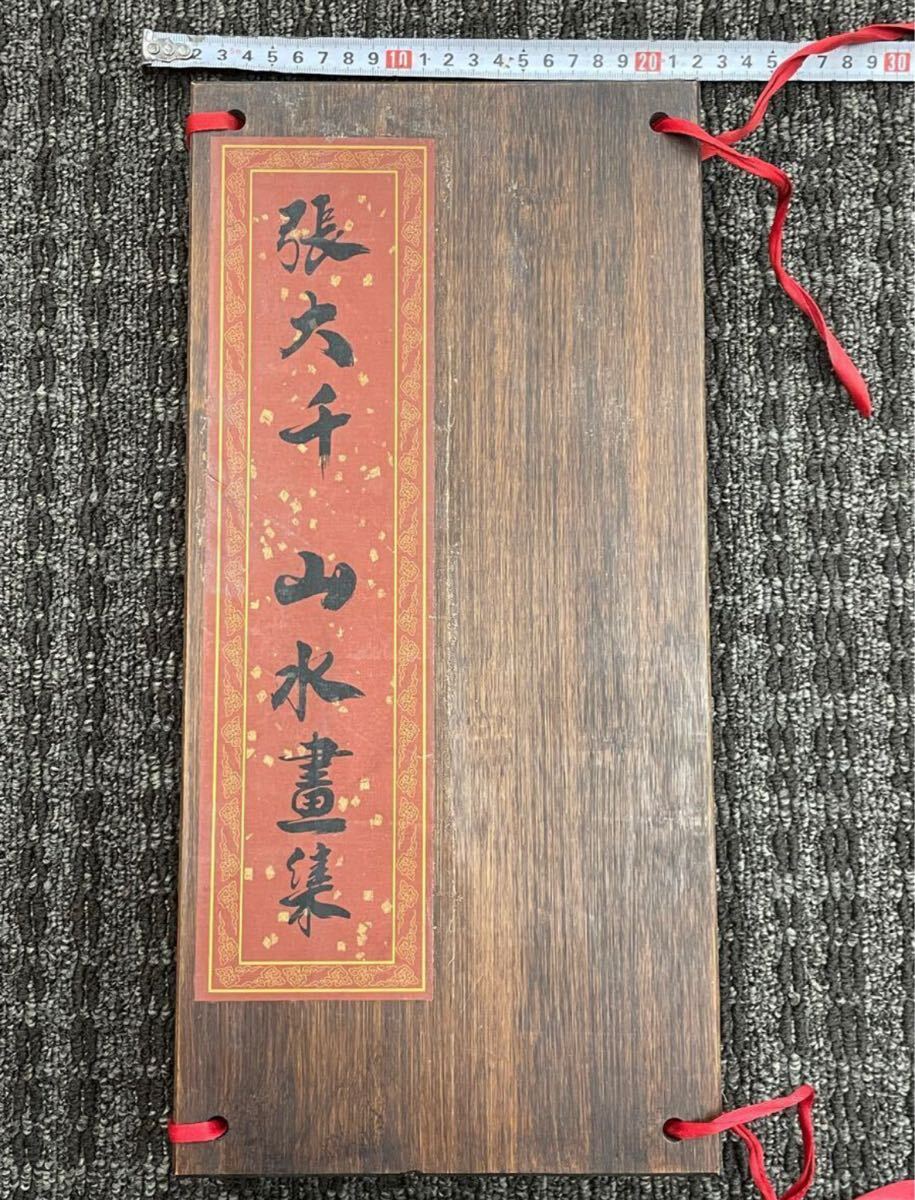 2 3 4 5 6 7 8 9 10 1 2 3 4 5 6 7 8 9 20 1 2 3 4 5 6 7 8 9 30
張大千 山水畫集